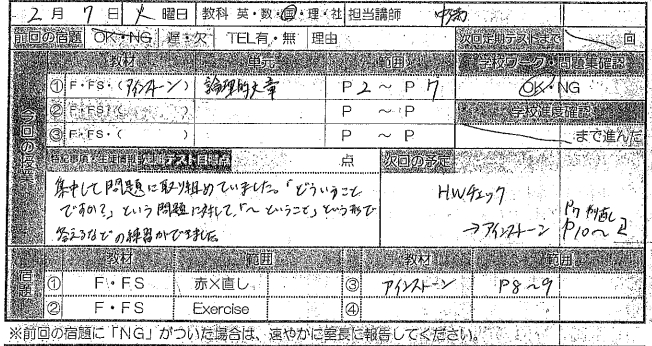 2月7日 火曜日 教科 英・数・国・理・社 担当講師
前回の宿題 OK・NG 遅・欠 TEL有・無 理由 次回定期テストまで 回
教材 単元 範囲 学校ワーク・問題集確認
① F・FS・(アインストーン) 論理的文章 P 2 ～ P 7 OK・NG
② F・FS・( ) P ～ P 学校進度確認
③ F・FS・( ) P ～ P まで進んだ
今回の授業
特記事項・生徒情報 テスト目標点 点 次回の予定
集中して問題に取り組めていました。「どういうこと
ですか?」という問題に対して、「～ということ」という形で
答えるなどの練習ができました。
HWチェック
→アインストーン P7 P10～
宿題 教材 範囲 教材 範囲
① F・FS 赤×直し ③ アインストーン P8～9
② F・FS Exercise ④
※前回の宿題に「NG」がついた場合は、速やかに室長に報告してください。